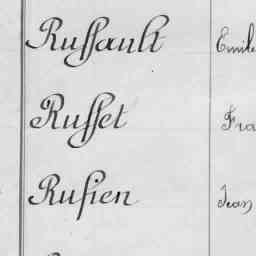 Russault Emile
Russet Fra
Rusien Jean